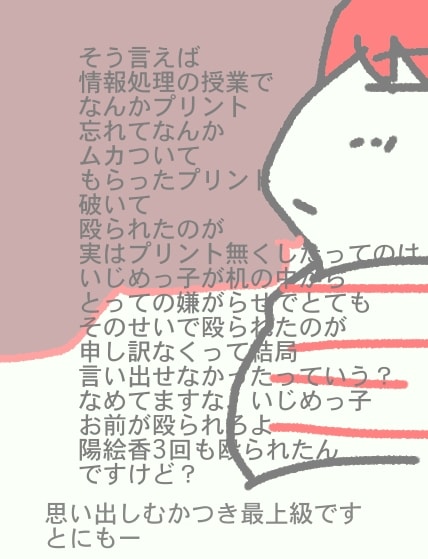 そう言えば
情報処理の授業で
なんかプリント
忘れてなんか
ムカついて
もらったプリント
破いて
殴られたのが
実はプリント無くしたってのは
いじめっ子が机の中から
とっての嫌がらせでとても
そのせいで殴られたのが
申し訳なくって結局
言い出せなかったっていう?
なめてますな、いじめっ子
お前が殴られろよ
陽絵香3回も殴られたん
ですけど?
思い出しむかつき最上級です
とにもー